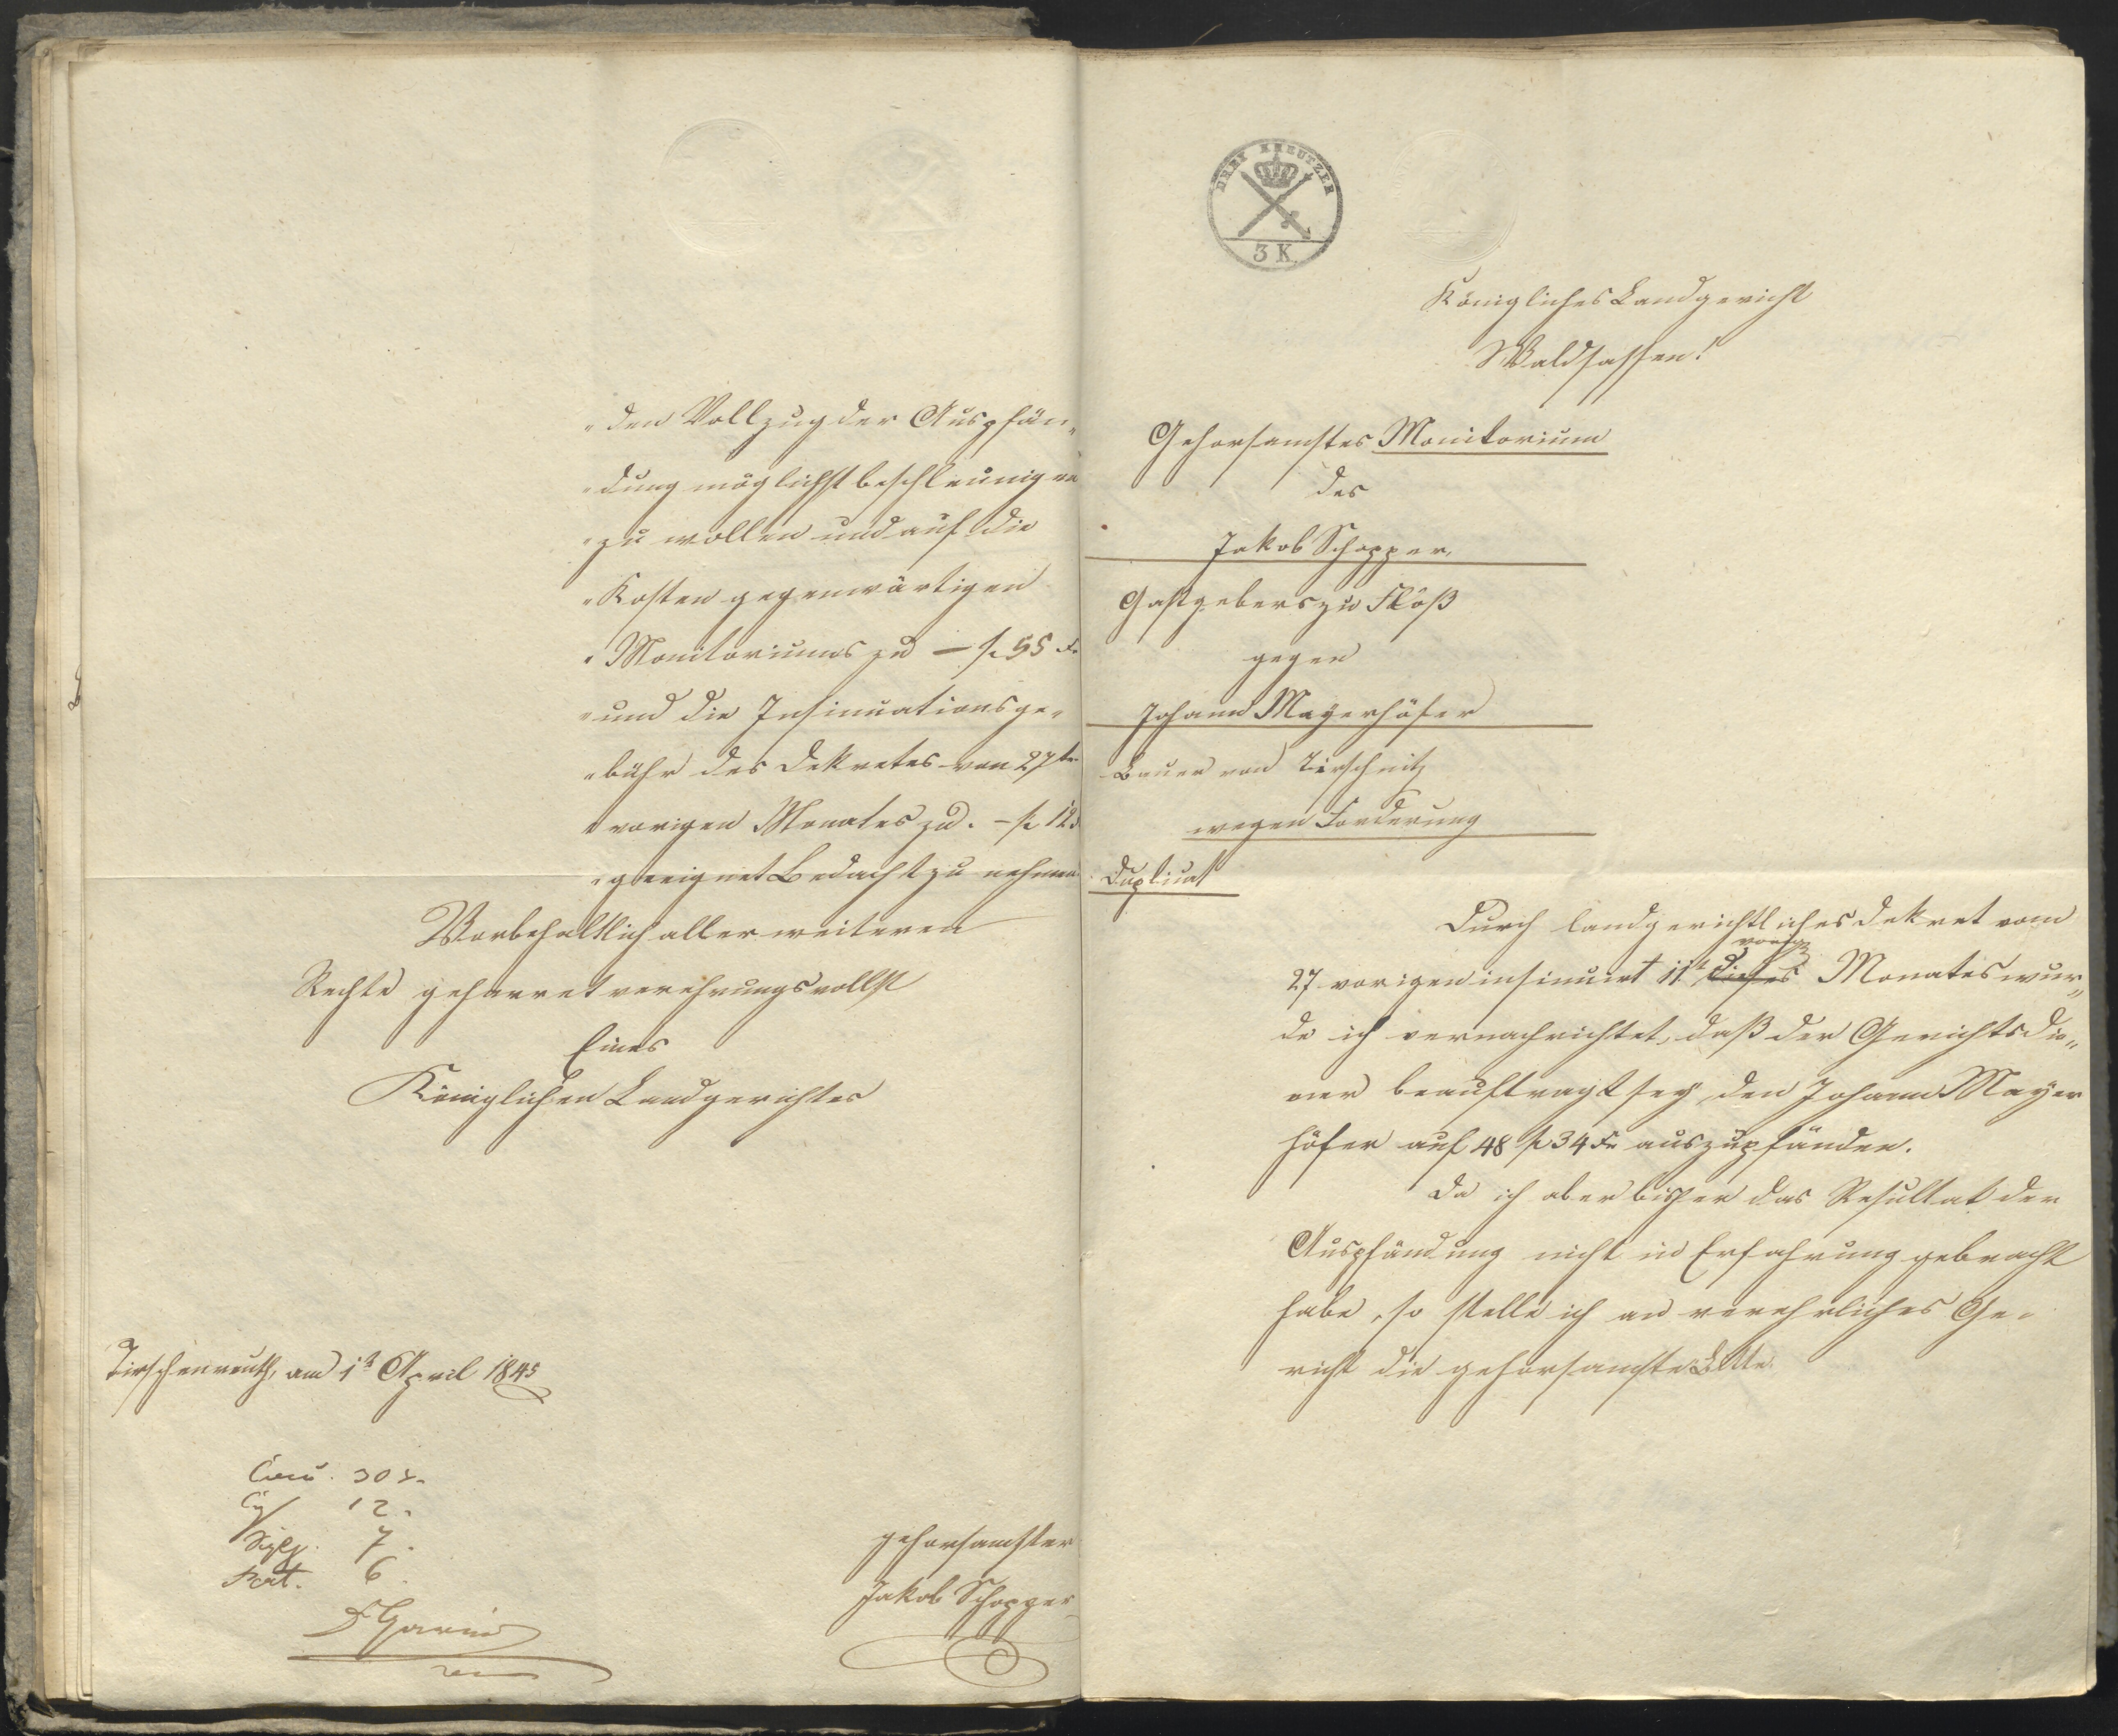 „den Vollzug der Auspfän„
„dung möglichst beschleunigen
„zu wollen und auf die
„Kosten gegenwärtigen
„Monitoriums zu — f 55 xr
„und die Insinuationsge„
„bühr des Dekretes von 27ten
„vorigen Monates zu. — f 12
„geeignet Bedacht zu nehmen.
Vorbehaltlich aller weiteren
Rechte geharret verehrungsvollst
Eines
Königlichen Landgerichtes
Tirschenreuth, am 1t April 1845
30 x.
12.
7.
6.
gehorsamster
Jakob Schopper
DREY KREUTZER
3 K.
Königliches Landgericht
Waldsassen!
Gehorsamstes Monitorium
des
Jakob Schopper,
Gastgebers zu Floß
gegen
Johann Mayerhöfer
Bauer von Tirschnitz
wegen Forderung
Duplicat
Durch landgerichtliches Dekret vom
vorig
27 vorigen insinuirt 11t dieses Monates wur„
de ich vernachrichtet, daß der Gerichtsdie„
ner beauftragt sey, den Johann Mayer
höfer auf 48 f 34 xr auszupfänden.
Da ich aber bisher das Resultat der
Auspfändung nicht in Erfahrung gebracht
habe, so stelle ich an verehrliches Ge„
richt die gehorsamste Bitte